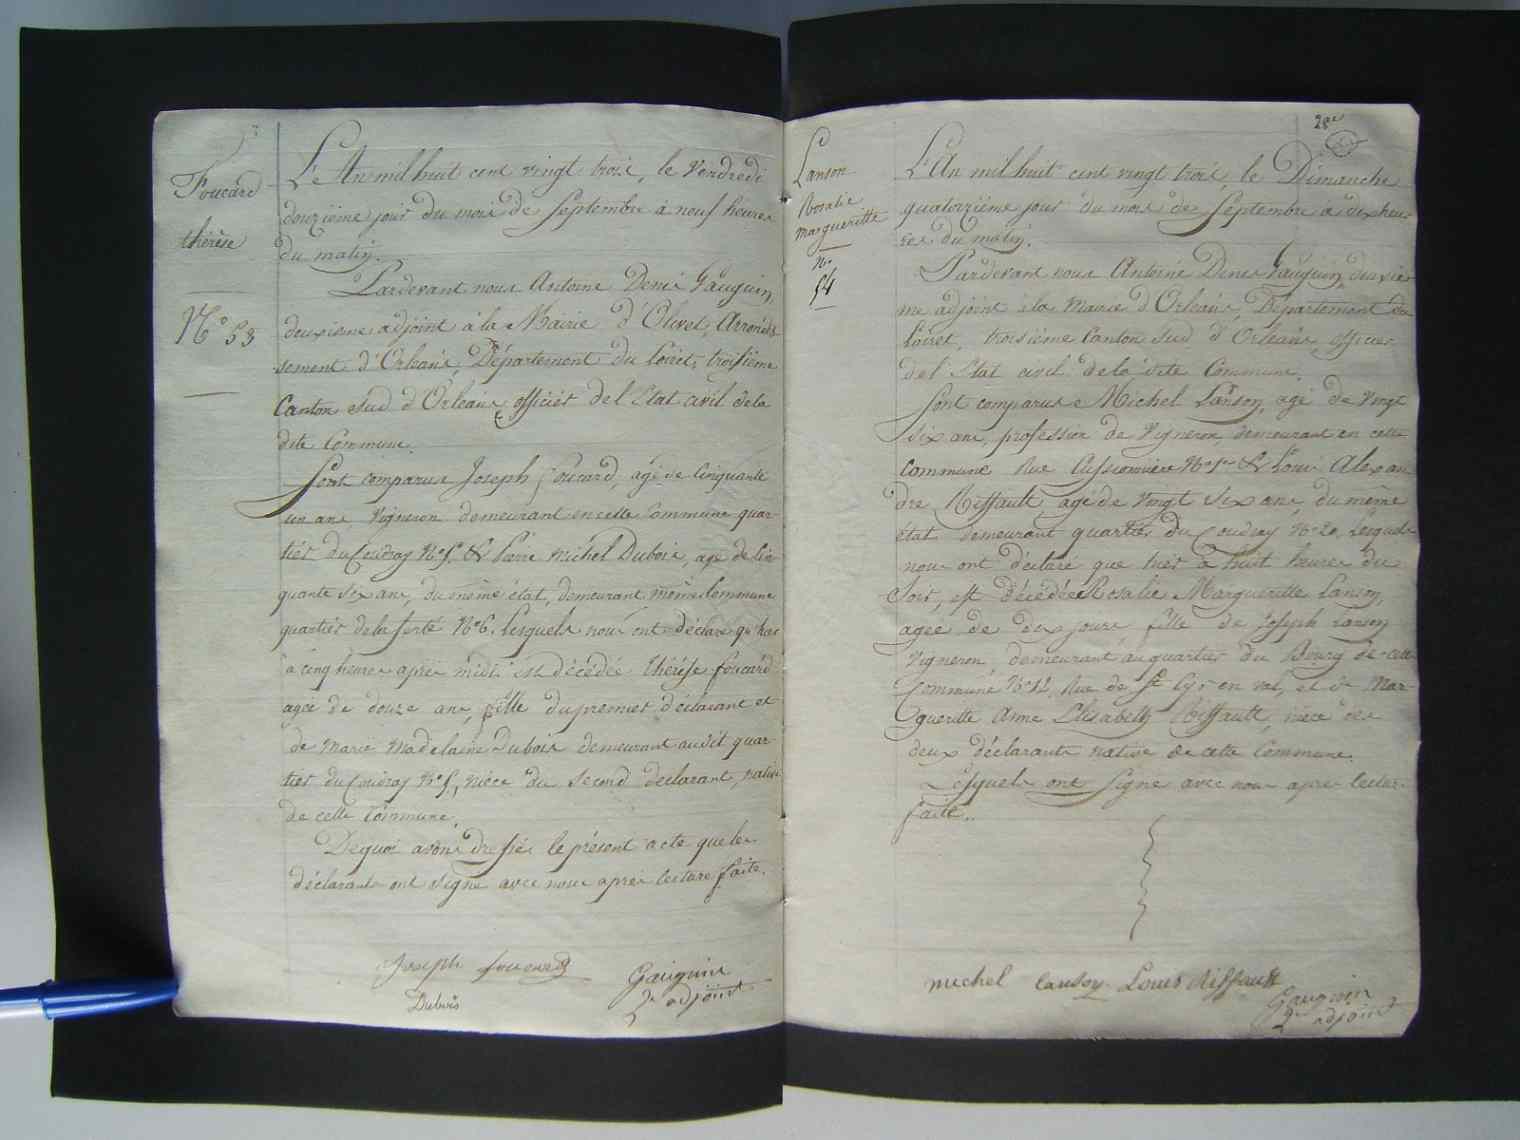 Foucard
thérèse
N° 53
L'An mil huit cent vingt trois, le Vendredi
douzième jour du mois de Septembre à neuf heures
du matin.
Pardevant nous Antoine Denis Gauguin,
deuxième adjoint à la Mairie d'Olivet, Arrondis
sement d'Orléans, Département du Loiret, troisième
Canton Sud d'Orléans, officier del Etat civil dela
dite Commune.
Sont comparus Joseph Foucard, agé de Cinquante
un ans Vigneron demeurant en cette Commune quar-
tier du Coudray N° 5. & Pierre Michel Dubois, agé de Cin
quante Six ans, du même état, demeurant même Commune
quartier dela ferté N° 6. lesquels nous ont déclaré qu'hier
à cinq heures après midi est décédée thérèse foucard
agée de douze ans, fille du premier déclarant et
de Marie Madelaine Dubois demeurant audit quar-
tier du Coudray N° 5, nièce du Second déclarant, native
de cette Commune.
Dequoi avons dressé le présent acte que les
déclarants ont signé avec nous après lecture faite.
Joseph foucard
Dubois
Gauguin
2e adjoint
28e
Lanson
Rosalie
margueritte
N°
54
L'An mil huit cent vingt trois, le Dimanche
quatorzième jour du mois de Septembre à dix heu-
res du matin.
Pardevant nous Antoine Denis Gauguin, deuxiè-
me adjoint à la Mairie d'Orléans, Département du
Loiret, troisième Canton Sud d'Orléans, officier
del Etat civil dela dite Commune.
Sont comparus Michel Lanson, agé de Vingt
Six ans, profession de Vigneron, demeurant en cette
Commune Rue & Louis Alexan
dre Riffault agé de Vingt Six ans, du même
état demeurant quartier du Coudray N° 20, lesquels
nous ont déclaré que hier à huit heures du
Soir, est décédée Rosalie Margueritte Lanson,
agée de dix jours fille de Joseph Lanson
Vigneron, demeurant au quartier du Bourg de cette
Commune N° 12, Rue de St Cyr en val, et de Mar-
gueritte Anne Elisabeth Riffault, nièce des
deux déclarants native de cette Commune.
Lesquels ont Signé avec nous après lectur-
faite.
michel lanson Louis Riffault
Gauguin
2e adjoint